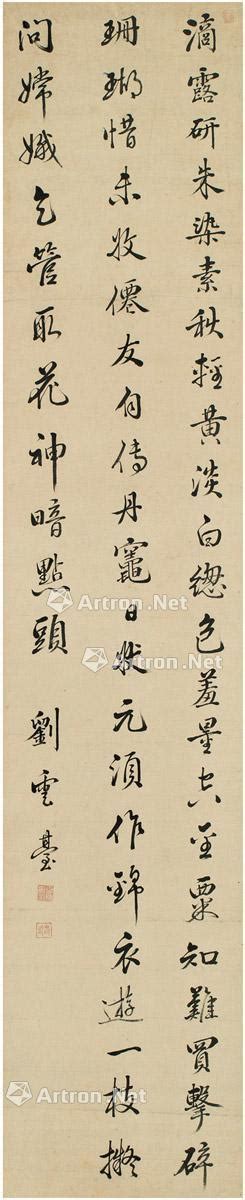 滴露研朱染素秋輕黃淡白總色羞量空金粟知難買擊碎
珊瑚惜未收僊友自傳丹竈日狀元須作錦衣遊一枝擬
問嫦娥乞管取花神暗點頭
劉雲臺
Artron.Net
Artron.Net
Artron.Net
Artron.Net